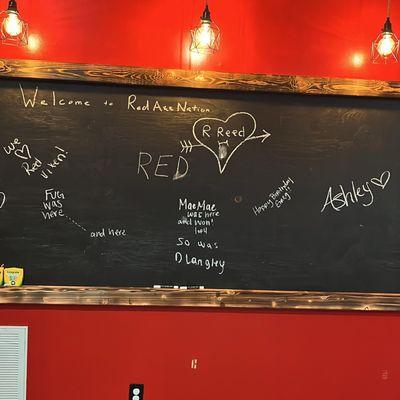 Welcome to RedAxeNation
We
Red
Viken!
FUG
was
here
and here
RED
R Reed
MaeMae
was here
and Won!
lol!
So was
D Langley
Happy Birthday
Ashley